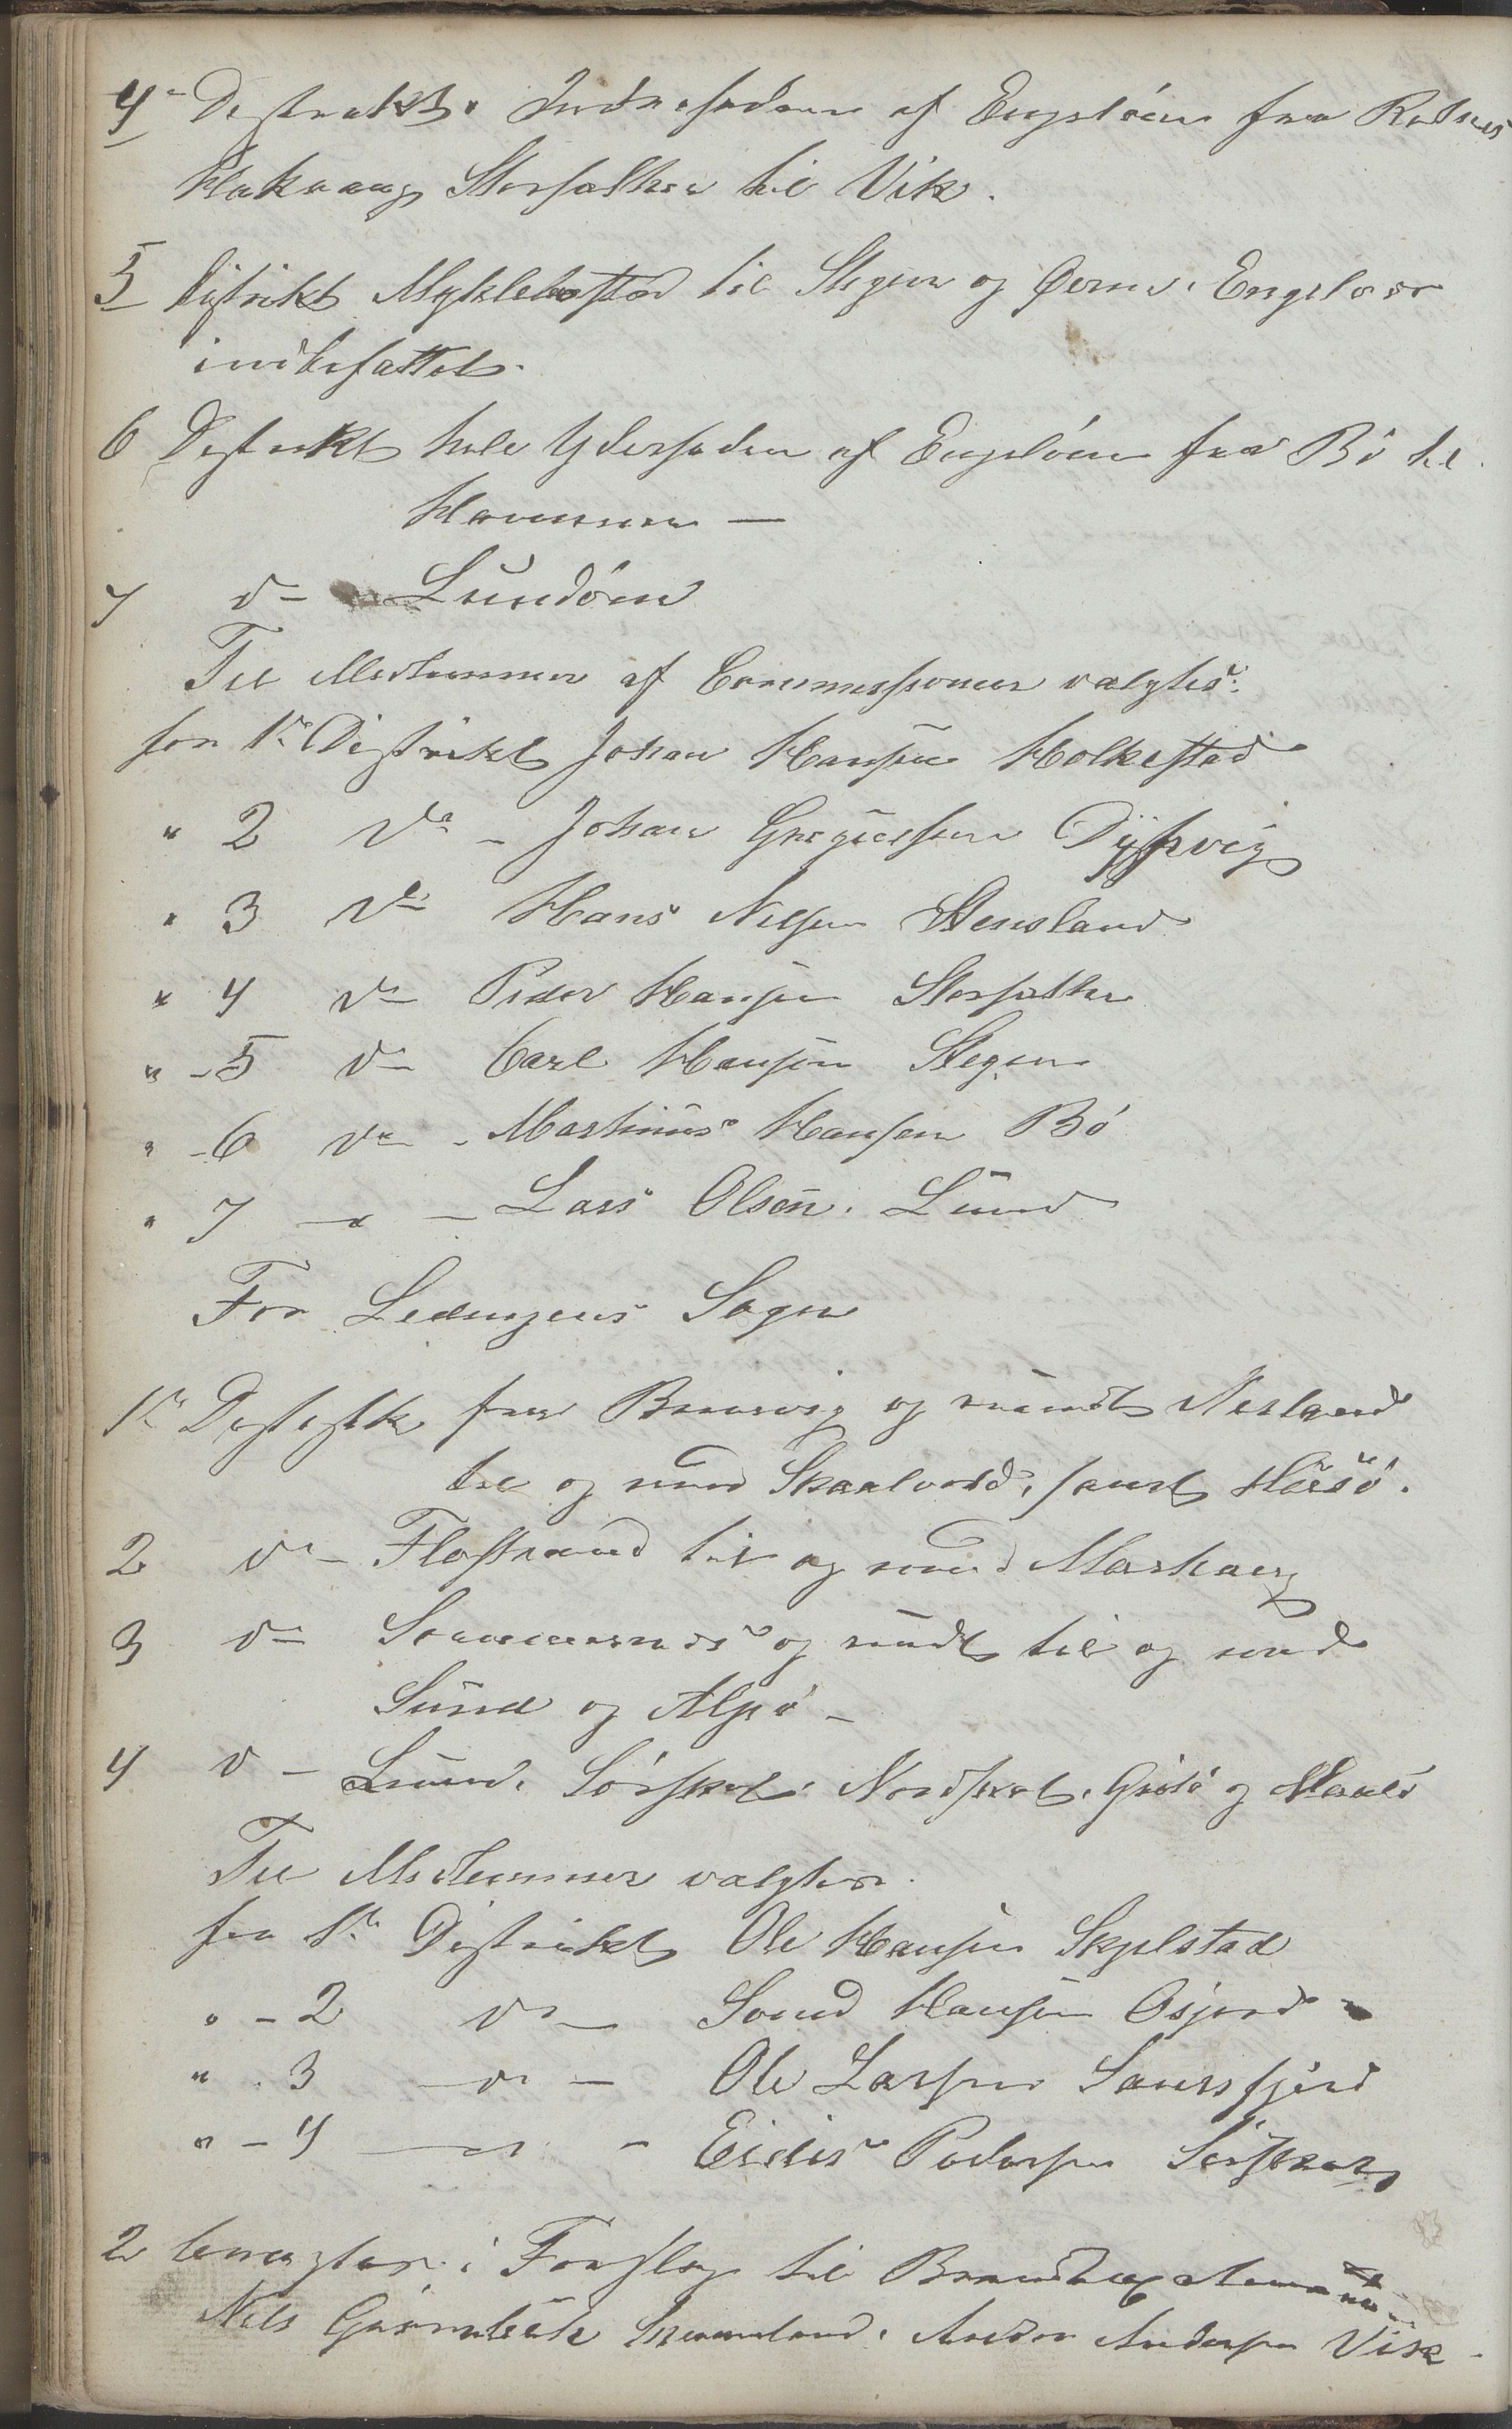 4de Distrikt. Indresaden af Engeløen fra Rødsnes
Haknaug Storfathen til Vik.
5 Distrikt Myklebostad til Stegen og Øerne. Engelvær
indbefattet.
6 Distrikt hele Ydersiden af Engeløen fra Bö til
Hovmnen —
7 do — Lundöen
Til Medlemmer af Commissionen valgtes:
for 1ste Distrikt Johan Hansen Holkestad
" 2 do — Johan Gregussen Dypvig
" 3 do Hans Nilsen Stensland
" 4 do Peder Hansen Storfathen
" - 5 do Carl Hansen Stegen
" - 6 do - Martinus Hansen Bö
" 7 — " — Lars Olsen. Lund
For Ledingens Sogn
1ste Distrikt fra Brunvig og rundt Nesland
til og med Skaalvold, samt Husö.
2 do — Flostrand til og med Marhaug
3 do Sommernes og rundt til og med
Sund og Alpö —
4 d — Lund, Sörskot Nordskot, Grötö og Maalö
Til Medlemmer valgtes
for 1ste Distrikt Ole Hansen Skjelstad
" - 2 do — Hansen Osjord
" . 3 — do — Ole Larsen Saursfjord
" - 4 — do — Eidis Pedersen Sörskot
2 bragtes i Forslag til
Nils Skjeland. Peder Andersen Vik